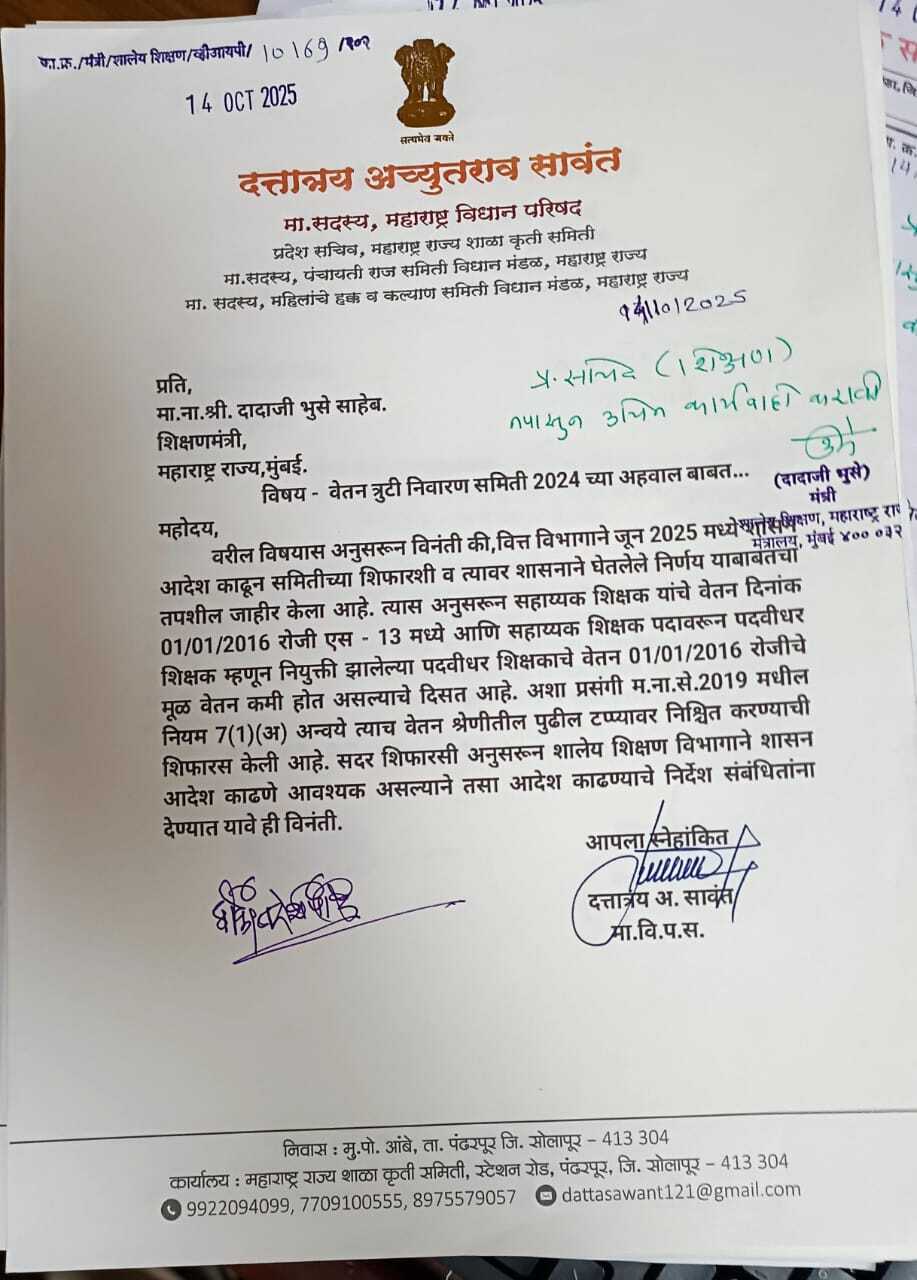 जा.क्र./मंत्री/शालेय शिक्षण/व्हीआयपी/ 10169 /२०२
14 OCT 2025
सत्यमेव जयते
दत्तात्रय अच्युतराव सावंत
मा.सदस्य, महाराष्ट्र विधान परिषद
प्रदेश सचिव, महाराष्ट्र राज्य शाळा कृती समिती
मा.सदस्य, पंचायती राज समिती विधान मंडळ, महाराष्ट्र राज्य
मा. सदस्य, महिलांचे हक्क व कल्याण समिती विधान मंडळ, महाराष्ट्र राज्य
/10/2025
प्र.सचिव (शिक्षण)
तपासून उचित कार्यवाही करावी
प्रति,
मा.ना.श्री. दादाजी भुसे साहेब.
शिक्षणमंत्री,
महाराष्ट्र राज्य,मुंबई.
(दादाजी भुसे)
मंत्री
शालेय शिक्षण, महाराष्ट्र
मंत्रालय, मुंबई ४०० ०३२
विषय - वेतन त्रुटी निवारण समिती 2024 च्या अहवाल बाबत...
महोदय,
वरील विषयास अनुसरून विनंती की,वित्त विभागाने जून 2025 मध्ये शासन
आदेश काढून समितीच्या शिफारशी व त्यावर शासनाने घेतलेले निर्णय याबाबतचा
तपशील जाहीर केला आहे. त्यास अनुसरून सहाय्यक शिक्षक यांचे वेतन दिनांक
01/01/2016 रोजी एस - 13 मध्ये आणि सहाय्यक शिक्षक पदावरून पदवीधर
शिक्षक म्हणून नियुक्ती झालेल्या पदवीधर शिक्षकाचे वेतन 01/01/2016 रोजीचे
मूळ वेतन कमी होत असल्याचे दिसत आहे. अशा प्रसंगी म.ना.से.2019 मधील
नियम 7(1)(अ) अन्वये त्याच वेतन श्रेणीतील पुढील टप्प्यावर निश्चित करण्याची
शिफारस केली आहे. सदर शिफारसी अनुसरून शालेय शिक्षण विभागाने शासन
आदेश काढणे आवश्यक असल्याने तसा आदेश काढण्याचे निर्देश संबंधितांना
देण्यात यावे ही विनंती.
आपला स्नेहांकित
दत्तात्रय अ. सावंत
मा.वि.प.स.
निवास : मु.पो. आंबे, ता. पंढरपूर जि. सोलापूर – 413 304
कार्यालय : महाराष्ट्र राज्य शाळा कृती समिती, स्टेशन रोड, पंढरपूर, जि. सोलापूर – 413 304
9922094099, 7709100555, 8975579057 dattasawant121@gmail.com